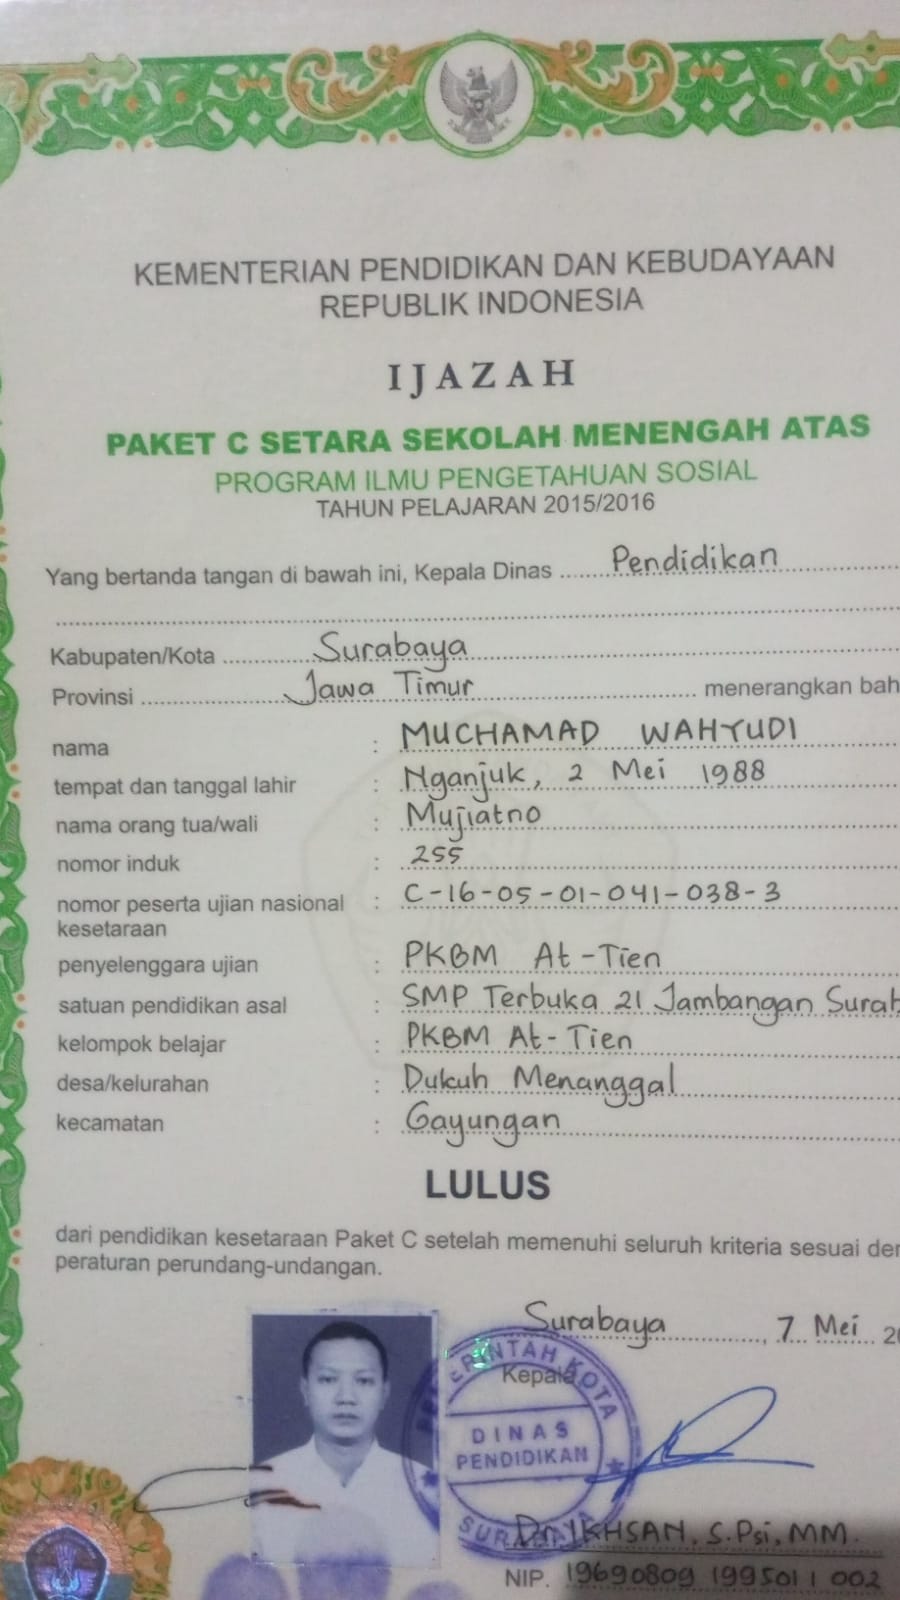 KEMENTERIAN PENDIDIKAN DAN KEBUDAYAAN
REPUBLIK INDONESIA
IJAZAH
PAKET C SETARA SEKOLAH MENENGAH ATAS
PROGRAM ILMU PENGETAHUAN SOSIAL
TAHUN PELAJARAN 2015/2016
Yang bertanda tangan di bawah ini, Kepala Dinas Pendidikan
Kabupaten/Kota Surabaya
Provinsi Jawa Timur menerangkan bah
nama : MUCHAMAD WAHYUDI
tempat dan tanggal lahir : Nganjuk, 2 Mei 1988
nama orang tua/wali : Mujiatno
nomor induk : 255
nomor peserta ujian nasional : C-16-05-01-041-038-3
kesetaraan
penyelenggara ujian : PKBM At-Tien
satuan pendidikan asal : SMP Terbuka 21 Jambangan Surab
kelompok belajar : PKBM At-Tien
desa/kelurahan : Dukuh Menanggal
kecamatan : Gayungan
LULUS
dari pendidikan kesetaraan Paket C setelah memenuhi seluruh kriteria sesuai den
peraturan perundang-undangan.
Surabaya, 7 Mei 20
Kepala
PEMERINTAH KOTA
DINAS
PENDIDIKAN
SURABAYA
Dr. IKHSAN, S.Psi, MM.
NIP. 19690809 199501 1 002